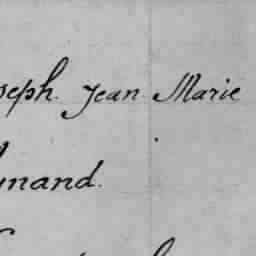 seph. Jean Marie
nand.